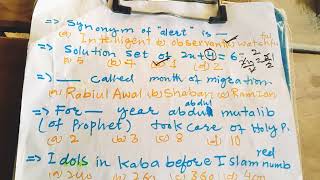 => Synonym of "alert" is —
(a) Intelligent b) observant c) watchful
=> Solution set of 2x+4=6
(a) 5 (b) 4 (c) 1 (d) 2
=> — called month of migration
(a) Rabiul Awal (b) Shaban (c) Ramzan
=> For — year abdul mutalib
(of Prophet) took care of Holy P.
(a) 2 (b) 3 (c) 8 (d) 10
=> Idols in Kaba before Islam numb
(a) 240 (b) 260 (c) 360 (d)